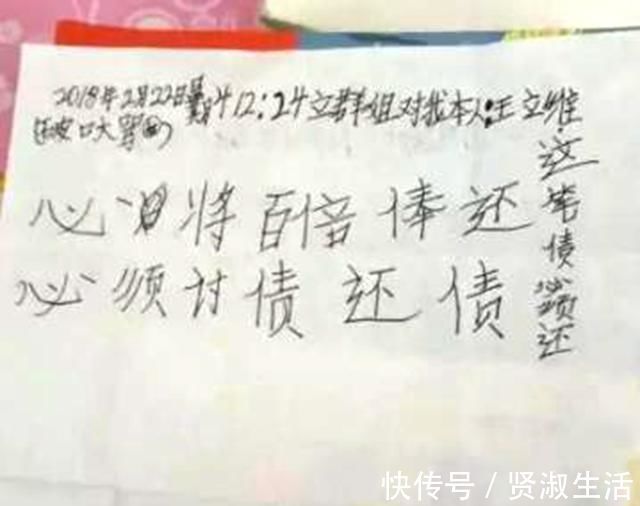 2018年2月22日 412:24立群姐对我本人王立维
破口大骂
必 将百倍俸还
必须讨债还债
这笔债必须还
快传号/贤淑生活